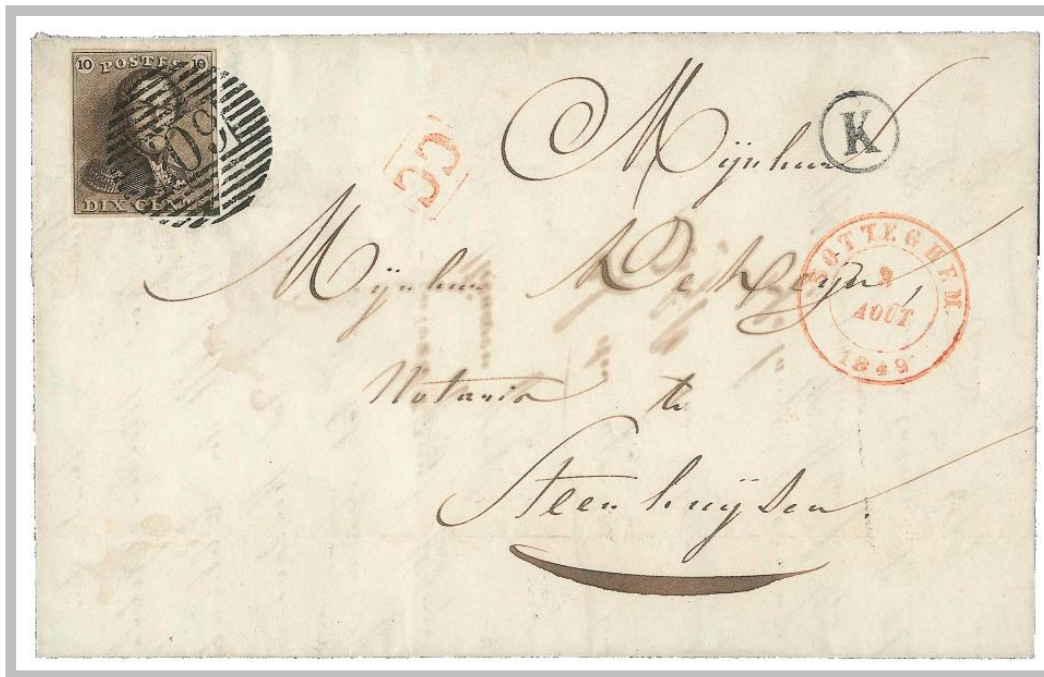 10 POSTES 10
DIX CENTS
CC
K
Mijnheer
Mijnheer De
SOTTEGHEM
AOUT
1849
Notaris te
Steenhuijsen